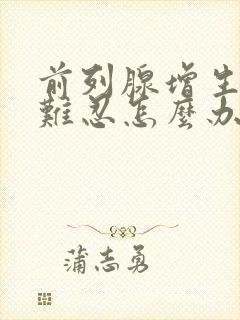 前列腺增生
難忍怎麼办
蒲志勇